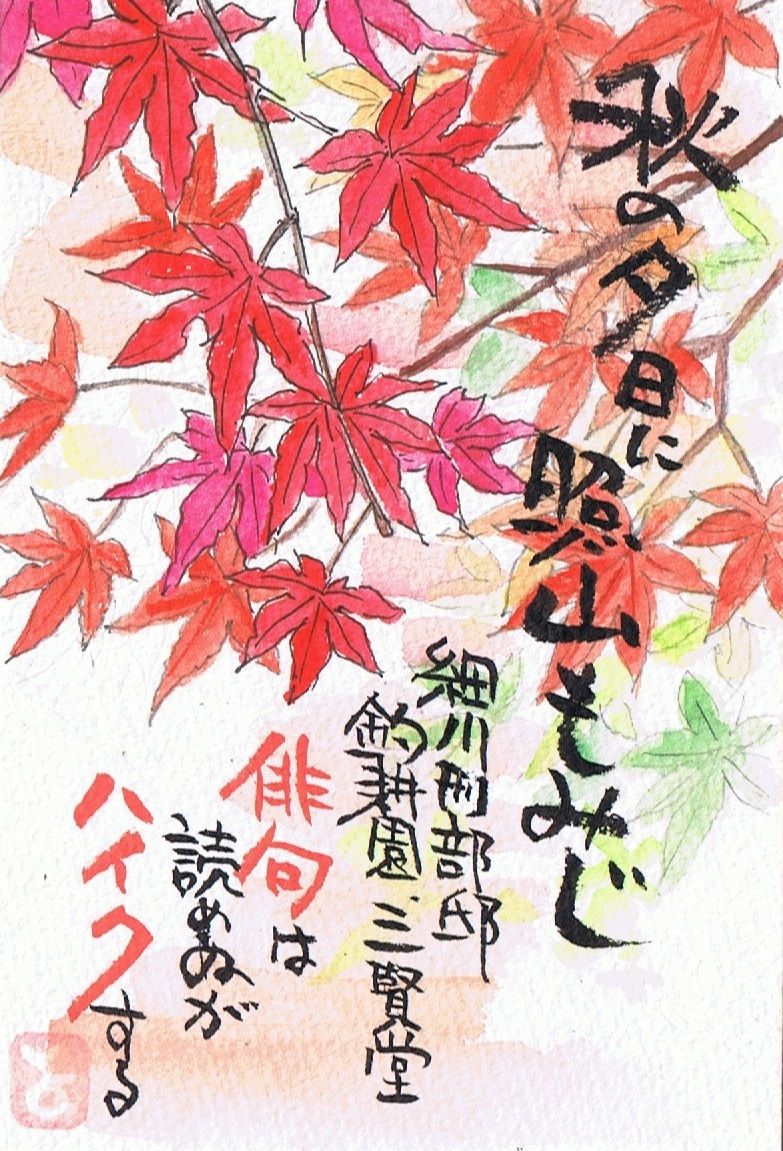 秋の夕日に
照山もみじ
細川刑部邸
釣耕園、三賢堂
俳句は
読めぬが
ハイクする
と